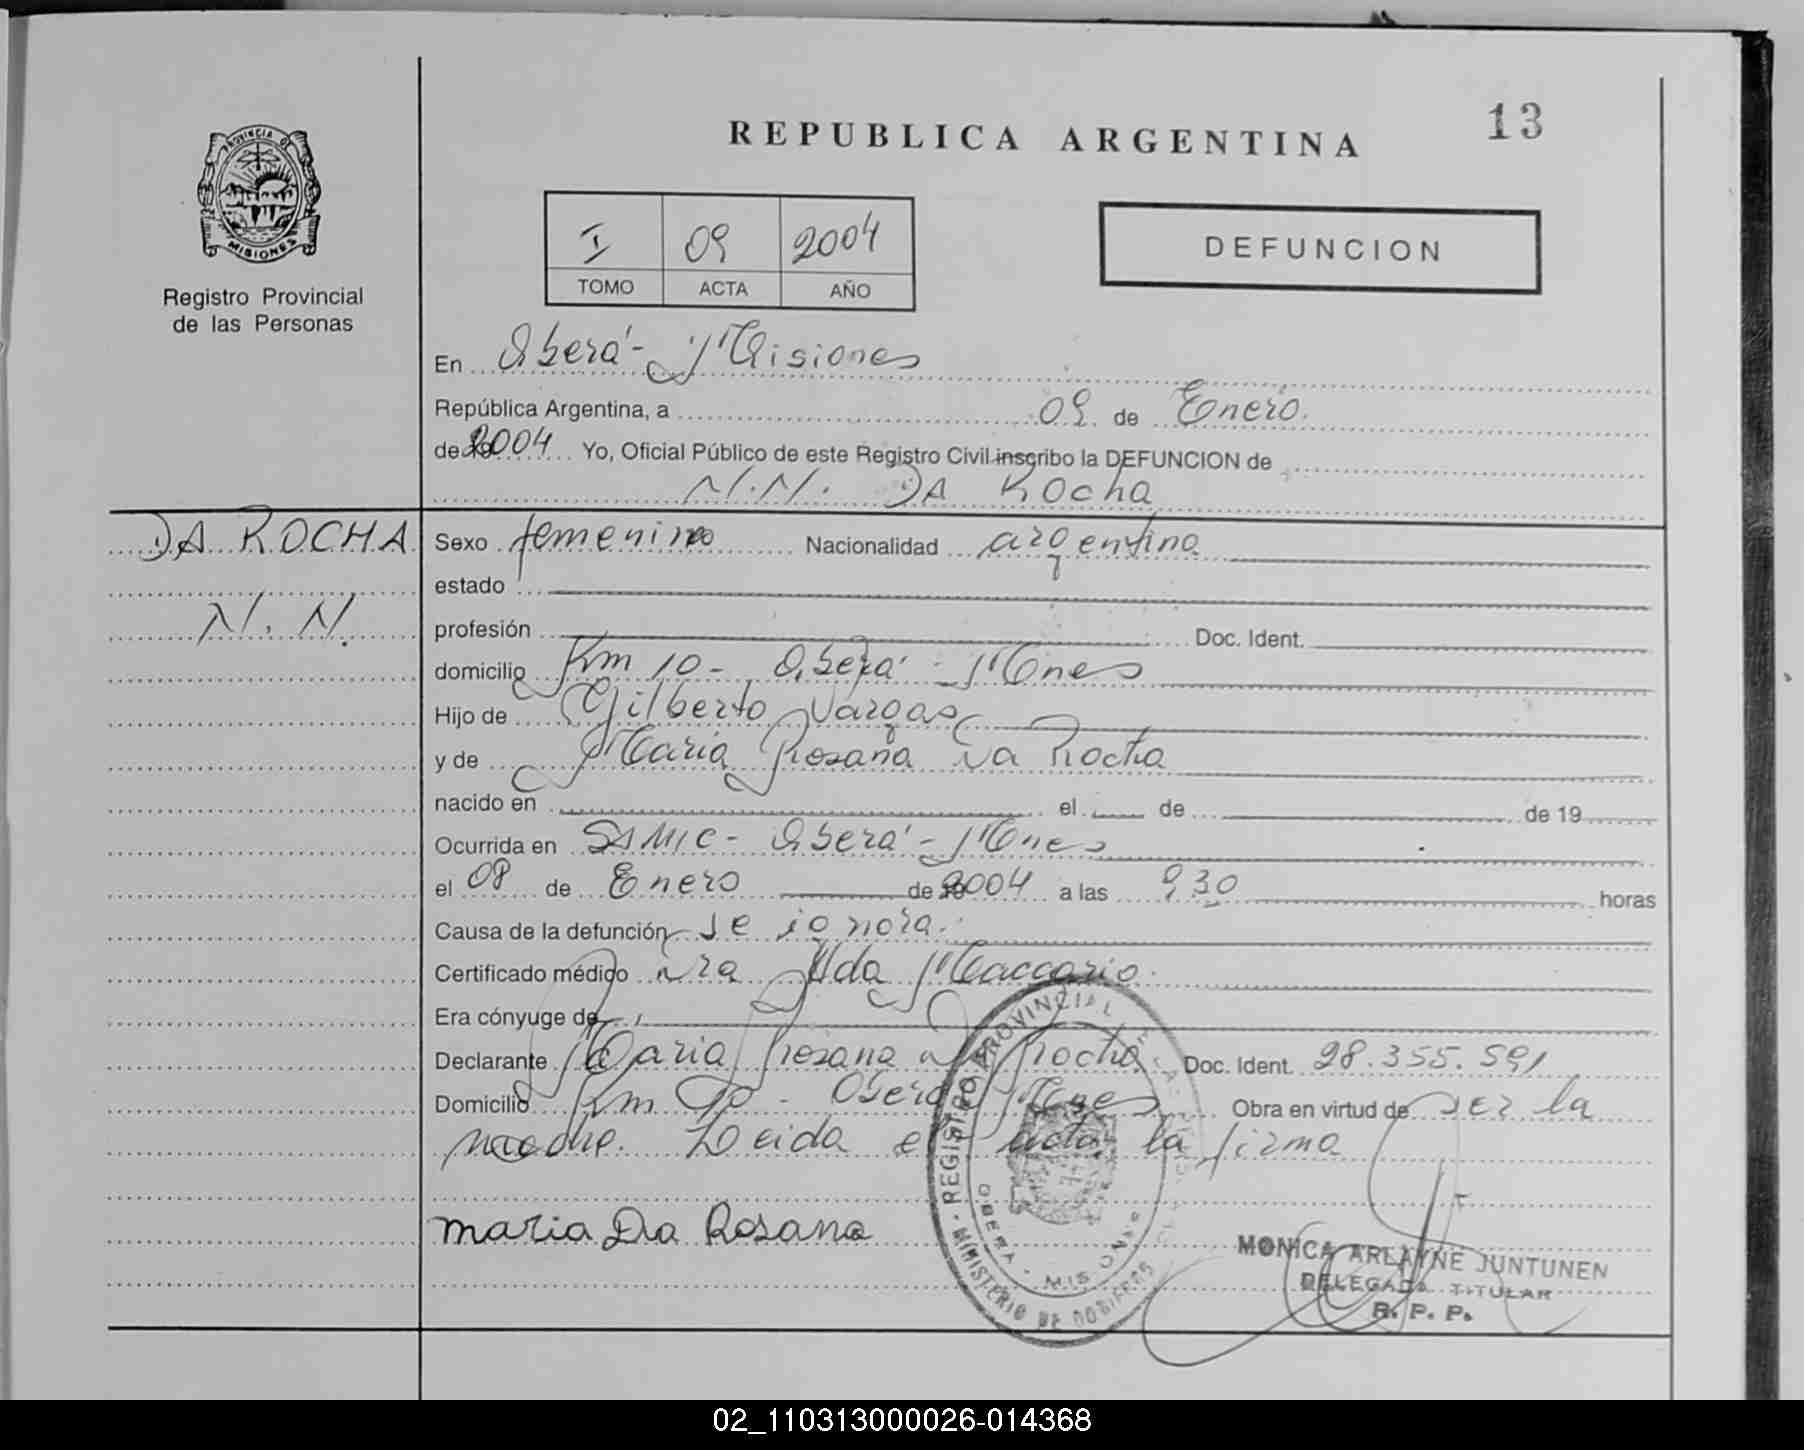 13
REPUBLICA ARGENTINA
PROVINCIA DE
MISIONES
Registro Provincial
de las Personas
I 09 2004
TOMO ACTA AÑO
DEFUNCION
En Oberá - Misiones
República Argentina, a 09 de Enero.
de 2004 Yo, Oficial Público de este Registro Civil inscribo la DEFUNCION de
N.N. DA ROCHA
DA ROCHA
N. N.
Sexo femenino Nacionalidad argentina
estado
profesión Doc. Ident.
domicilio Km 10 - Oberá - Mnes
Hijo de Gilberto Vargas
y de Maria Rosana Da Rocha
nacido en el de de 19
Ocurrida en SAMIC - Oberá - Mnes
el 08 de Enero de 2004 a las 9.30 horas
Causa de la defunción se ignora.
Certificado médico Dra Ilda Maccario.
Era cónyuge de
Declarante Maria Rosana Da Rocha Doc. Ident. 28.355.591
Domicilio Km 10 - Oberá Mnes Obra en virtud de ser la
madre. Leida el acta la firma
maria Da Rosana
REGISTRO PROVINCIAL DE LAS PERSONAS
OBERA - MISIONES
MINISTERIO DE GOBIERNO
MONICA ARLAYNE JUNTUNEN
DELEGADA TITULAR
R. P. P.
02_110313000026-014368